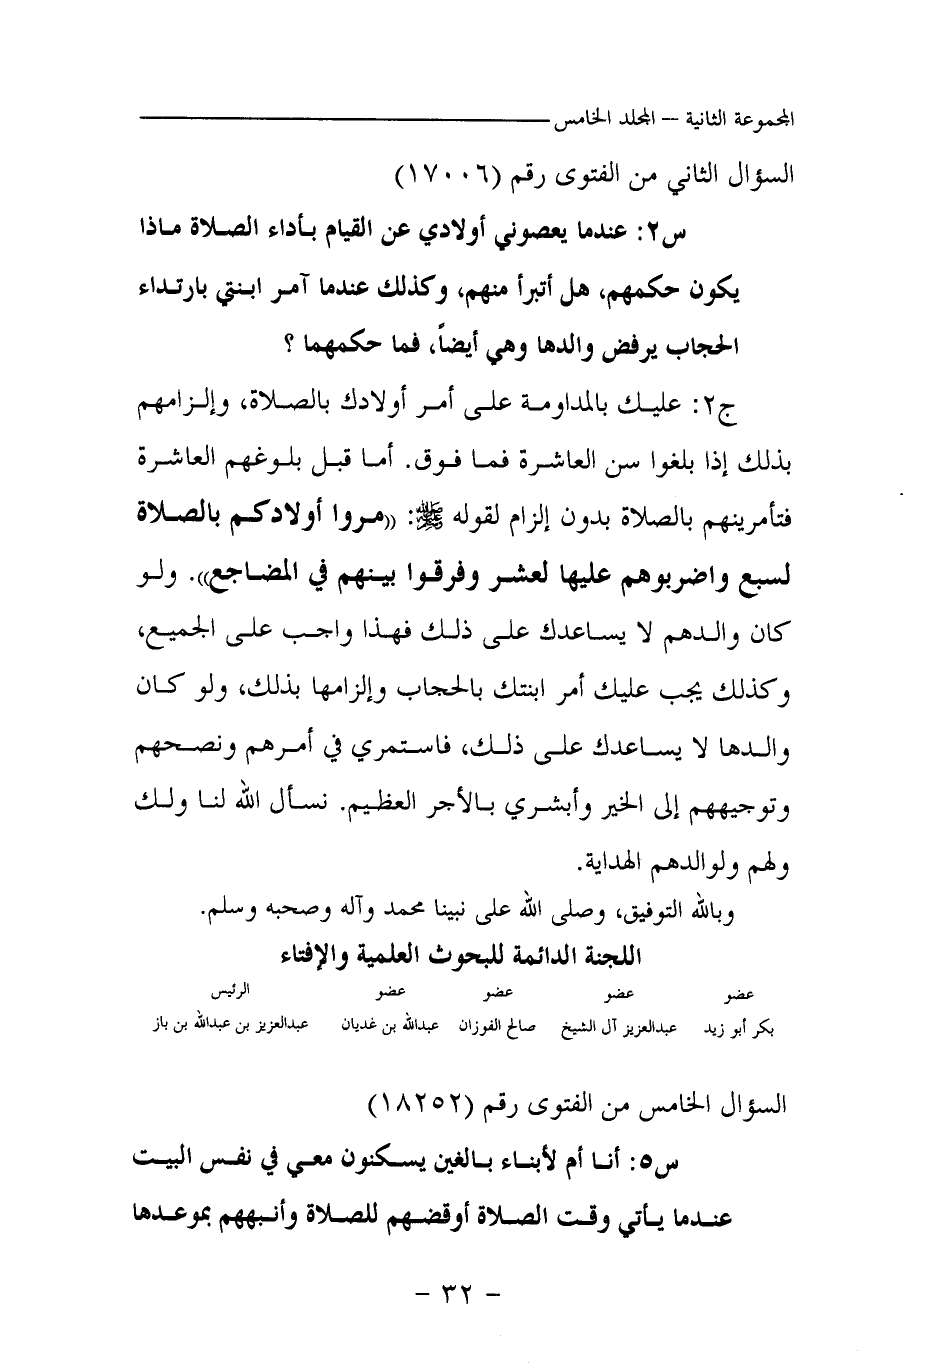 المجموعة الثانية – المجلد الخامس
السؤال الثاني من الفتوى رقم (١٧٠٠٦)
س٢: عندما يعصوني أولادي عن القيام بأداء الصلاة ماذا
يكون حكمهم، هل أتبرأ منهم، وكذلك عندما آمر ابنتي بارتداء
الحجاب يرفض والدها وهي أيضاً، فما حكمهما ؟
ج٢: عليك بالمداومة على أمر أولادك بالصلاة، وإلزامهم
بذلك إذا بلغوا سن العاشرة فما فوق. أما قبل بلوغهم العاشرة
فتأمرينهم بالصلاة بدون إلزام لقوله ﷺ: ((مروا أولادكم بالصلاة
لسبع واضربوهم عليها لعشر وفرقوا بينهم في المضاجع)). ولو
كان والدهم لا يساعدك على ذلك فهذا واجب على الجميع،
وكذلك يجب عليك أمر ابنتك بالحجاب وإلزامها بذلك، ولو كان
والدها لا يساعدك على ذلك، فاستمري في أمرهم ونصحهم
وتوجيههم إلى الخير وأبشري بالأجر العظيم. نسأل الله لنا ولك
ولهم ولوالدهم الهداية.
وبالله التوفيق، وصلى الله على نبينا محمد وآله وصحبه وسلم.
اللجنة الدائمة للبحوث العلمية والإفتاء
عضو عضو عضو عضو الرئيس
بكر أبو زيد عبدالعزيز آل الشيخ صالح الفوزان عبدالله بن غديان عبدالعزيز بن عبدالله بن باز
السؤال الخامس من الفتوى رقم (١٨٢٥٢)
س٥: أنا أم لأبناء بالغين يسكنون معي في نفس البيت
عندما يأتي وقت الصلاة أوقضهم للصلاة وأنبههم بموعدها
– ٣٢ –